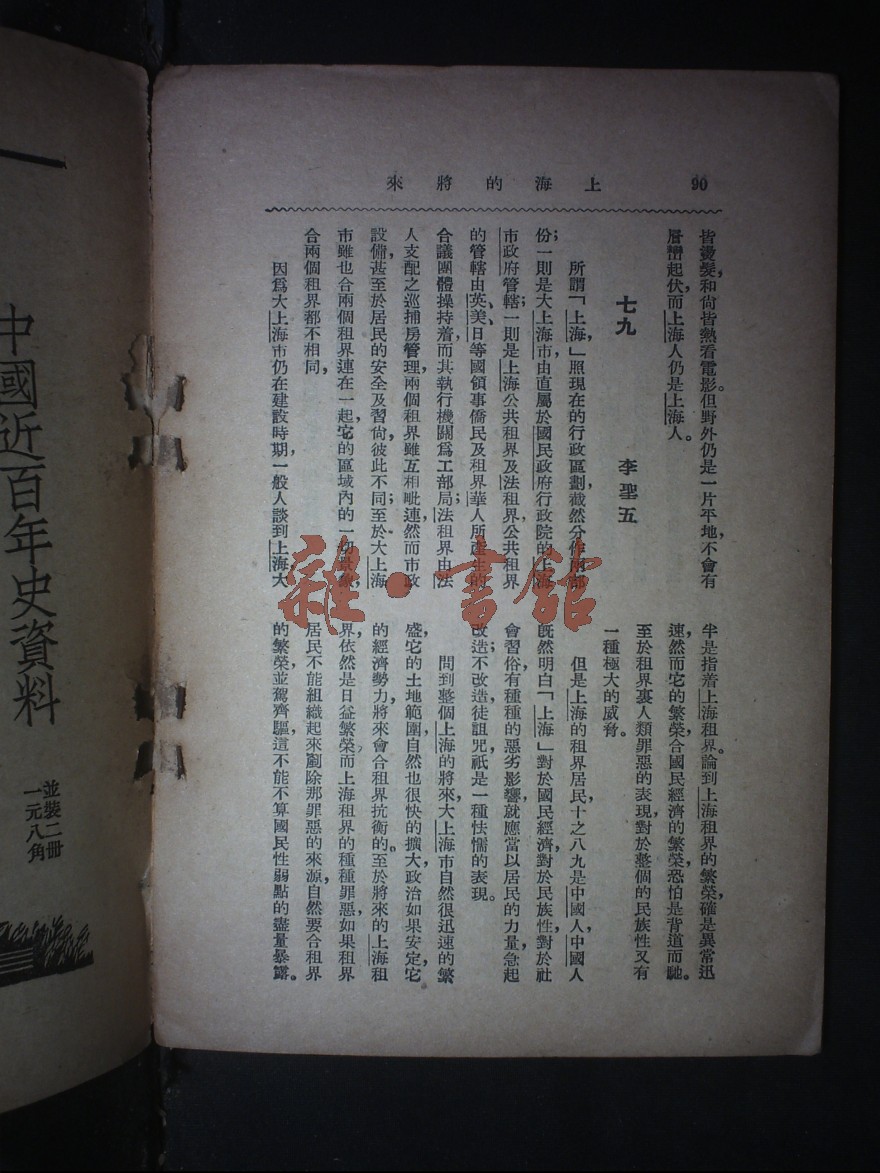 上海的將來
90
皆燙髮,和尙皆熱看電影。但野外仍是一片平地,不會有
層巒起伏,而上海人仍是上海人。
七九
李聖五
所謂「上海,」照現在的行政區劃截然分作兩部
份;一則是大上海市,由直屬於國民政府行政院的上海
市政府管轄;一則是上海公共租界及法租界。公共租界
的管轄由英、美、日等國領事僑民及租界華人所產生的
合議團體操持着,而其執行機關爲工部局;法租界由法
人支配之巡捕房管理,兩個租界雖互相毗連,然而市政
設備,甚至於居民的安全及習尙,彼此不同;至於大上海
市雖也合兩個租界連在一起,它的區域內的一切景象,
合兩個租界都不相同。
因爲大上海市仍在建設時期,一般人談到上海大
半是指着上海租界。論到上海租界的繁榮,確是異常迅
速,然而它的繁榮,合國民經濟的繁榮,恐怕是背道而馳。
至於租界裏人類罪惡的表現,對於整個的民族性又有
一種極大的威脅。
但是上海的租界居民十之八九是中國人,中國人
旣然明白「上海」對於國民經濟,對於民族性,對於社
會習俗,有種種的惡劣影響,就應當以居民的力量,急起
改造;不改造,徒詛咒,祇是一種怯懦的表現。
問到整個上海的將來,大上海市自然很迅速的繁
盛,它的土地範圍自然也很快的擴大,政治如果安定,它
的經濟勢力,將來會合租界抗衡的。至於將來的上海租
界,依然是日益繁榮,而上海租界的種種罪惡,如果租界
居民不能組織起來剷除那罪惡的來源,自然要合租界
的繁榮並駕齊驅,這不能不算國民性弱點的盡量暴露。
中國近百年史資料
並裝二冊
一元八角
雜·書館